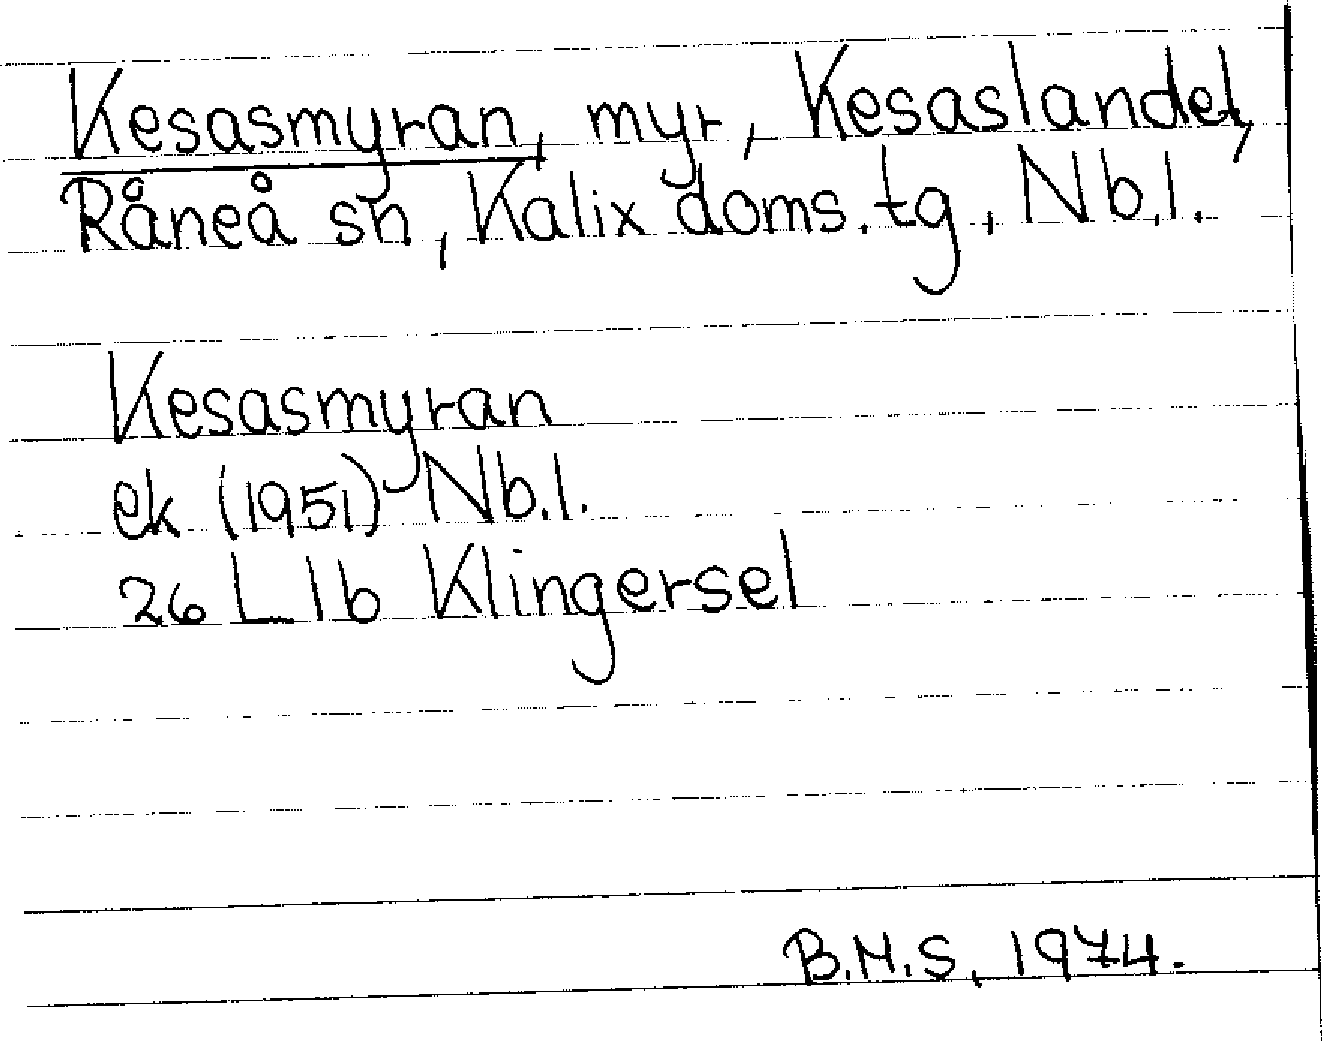 Kesasmyran, myr, Kesaslandet,
Råneå sn, Kalix doms. tg, Nb.l.
Kesasmyran
ek (1951) Nb.l.
26 L 1b Klingersel
B.M.S, 1974.